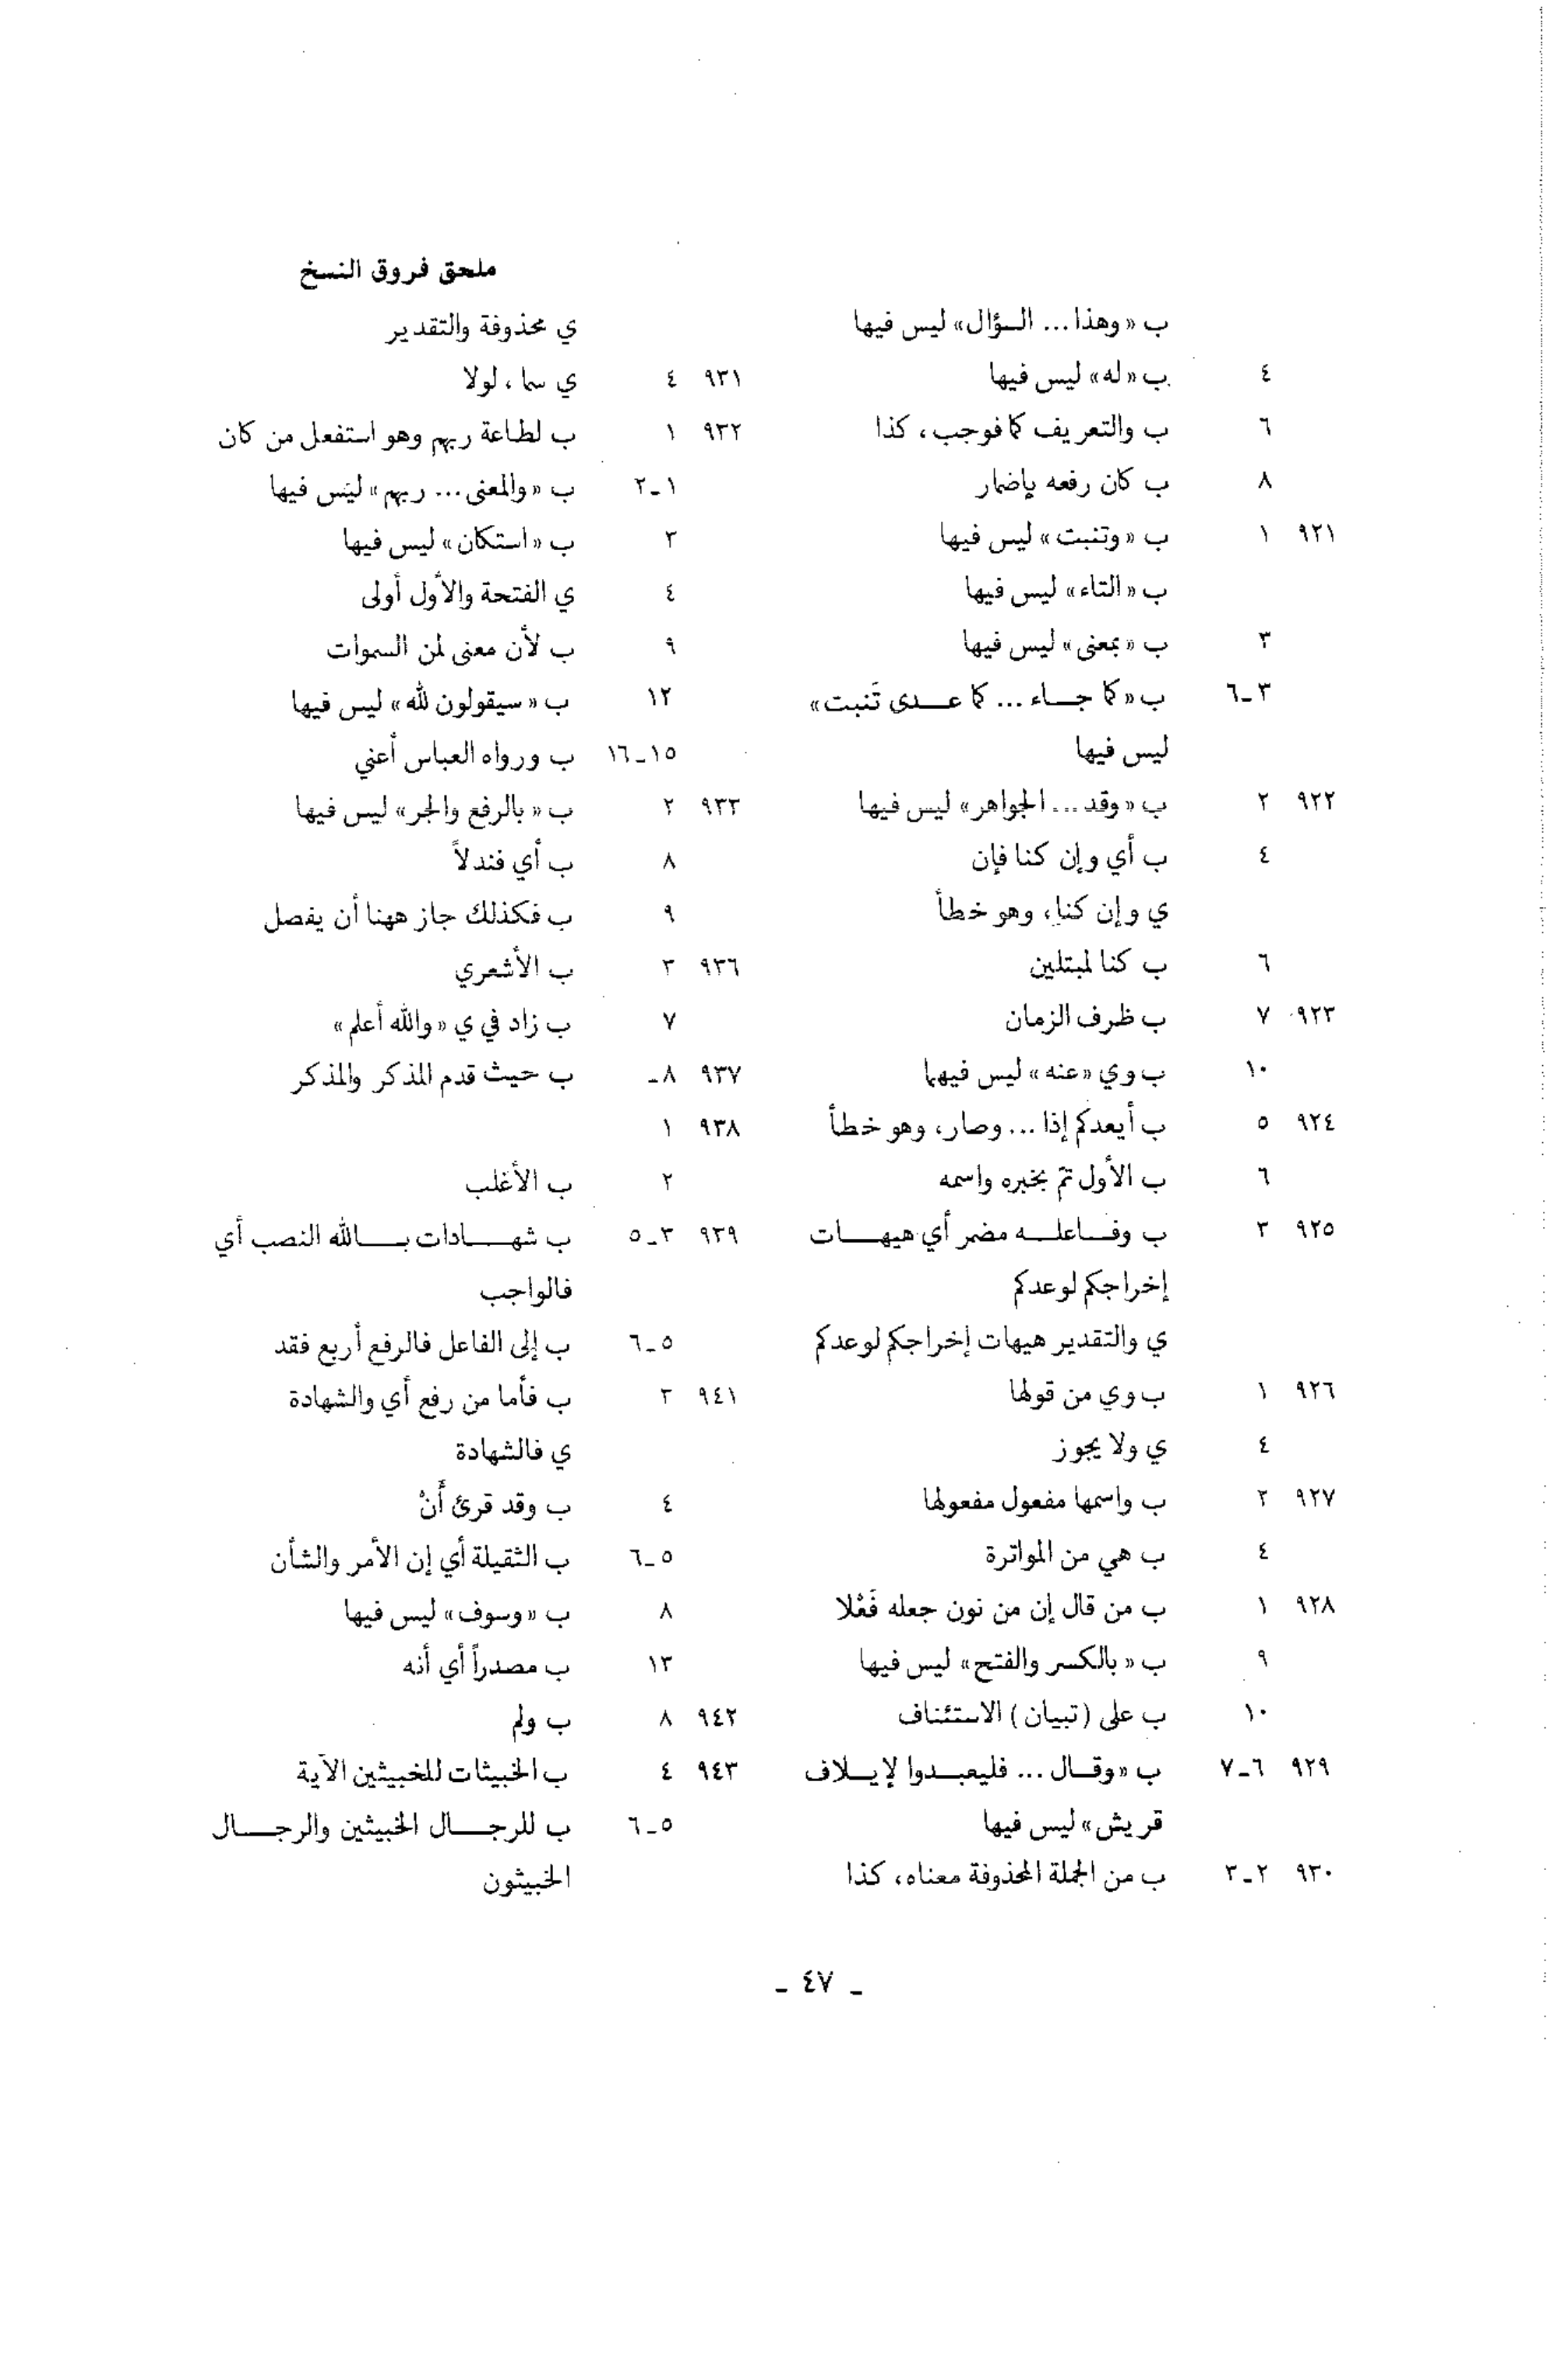 ملحق فروق النسخ
ب «وهذا... السؤال» ليس فيها
٤ ب «له» ليس فيها
٦ ب والتعريف كما فوجب، كذا
٨ ب كان رفعه بإضمار
٩٢١ ١ ب «وتنبت» ليس فيها
ب «التاء» ليس فيها
٣ ب «بمعنى» ليس فيها
٣-٦ ب «كما جاء ... كما عدى تَنبت»
ليس فيها
٩٢٢ ٢ ب «وقد... الجواهر» ليس فيها
٤ ب أي وإن كنا فإن
ي وإن كنا، وهو خطأ
٦ ب كنا لمبتلين
٩٢٣ ٧ ب ظرف الزمان
١٠ ب وي «عنه» ليس فيهما
٩٢٤ ٥ ب أيعدكم إذا ... وصار، وهو خطأ
٦ ب الأول تمّ بخبره واسمه
٩٢٥ ٣ ب وفاعله مضمر أي هيهات
إخراجكم لوعدكم
ي والتقدير هيهات إخراجكم لوعدكم
٩٢٦ ١ ب وي من قولها
٤ ي ولا يجوز
٩٢٧ ٢ ب واسمها مفعول مفعولها
٤ ب هي من المواترة
٩٢٨ ١ ب من قال إن من نون جعله فَعْلا
٩ ب «بالكسر والفتح» ليس فيها
١٠ ب على (تبيان) الاستئناف
٩٢٩ ٦-٧ ب «وقال ... فليعبدوا لإيلاف
قريش» ليس فيها
٩٣٠ ٢-٣ ب من الجملة المحذوفة معناه، كذا
ي محذوفة والتقدير
٩٣١ ٤ ي سما، لولا
٩٣٢ ١ ب لطاعة ربهم وهو استفعل من كان
١-٢ ب «والمعنى... ربهم» ليس فيها
٣ ب «استكان» ليس فيها
٤ ي الفتحة والأول أولى
٩ ب لأن معنى لمن السموات
١٢ ب «سيقولون لله» ليس فيها
١٥-١٦ ب ورواه العباس أعني
٩٣٣ ٢ ب «بالرفع والجر» ليس فيها
٨ ب أي فندلاً
٩ ب فكذلك جاز ههنا أن يفصل
٩٣٦ ٣ ب الأشعري
٧ ب زاد في ي «والله أعلم»
٩٣٧ ٨- ب حيث قدم المذكر والمذكر
٩٣٨ ١
٢ ب الأغلب
٩٣٩ ٣-٥ ب شهادات بالله النصب أي
فالواجب
٥-٦ ب إلى الفاعل فالرفع أربع فقد
٩٤١ ٣ ب فأما من رفع أي والشهادة
ي فالشهادة
٤ ب وقد قرئ أَنْ
٥-٦ ب الثقيلة أي إن الأمر والشأن
٨ ب «وسوف» ليس فيها
١٣ ب مصدراً أي أنه
٩٤٢ ٨ ب ولم
٩٤٣ ٤ ب الخبيثات للخبيثين الآية
٥-٦ ب للرجال الخبيثين والرجال
الخبيثون
- ٤٧ -